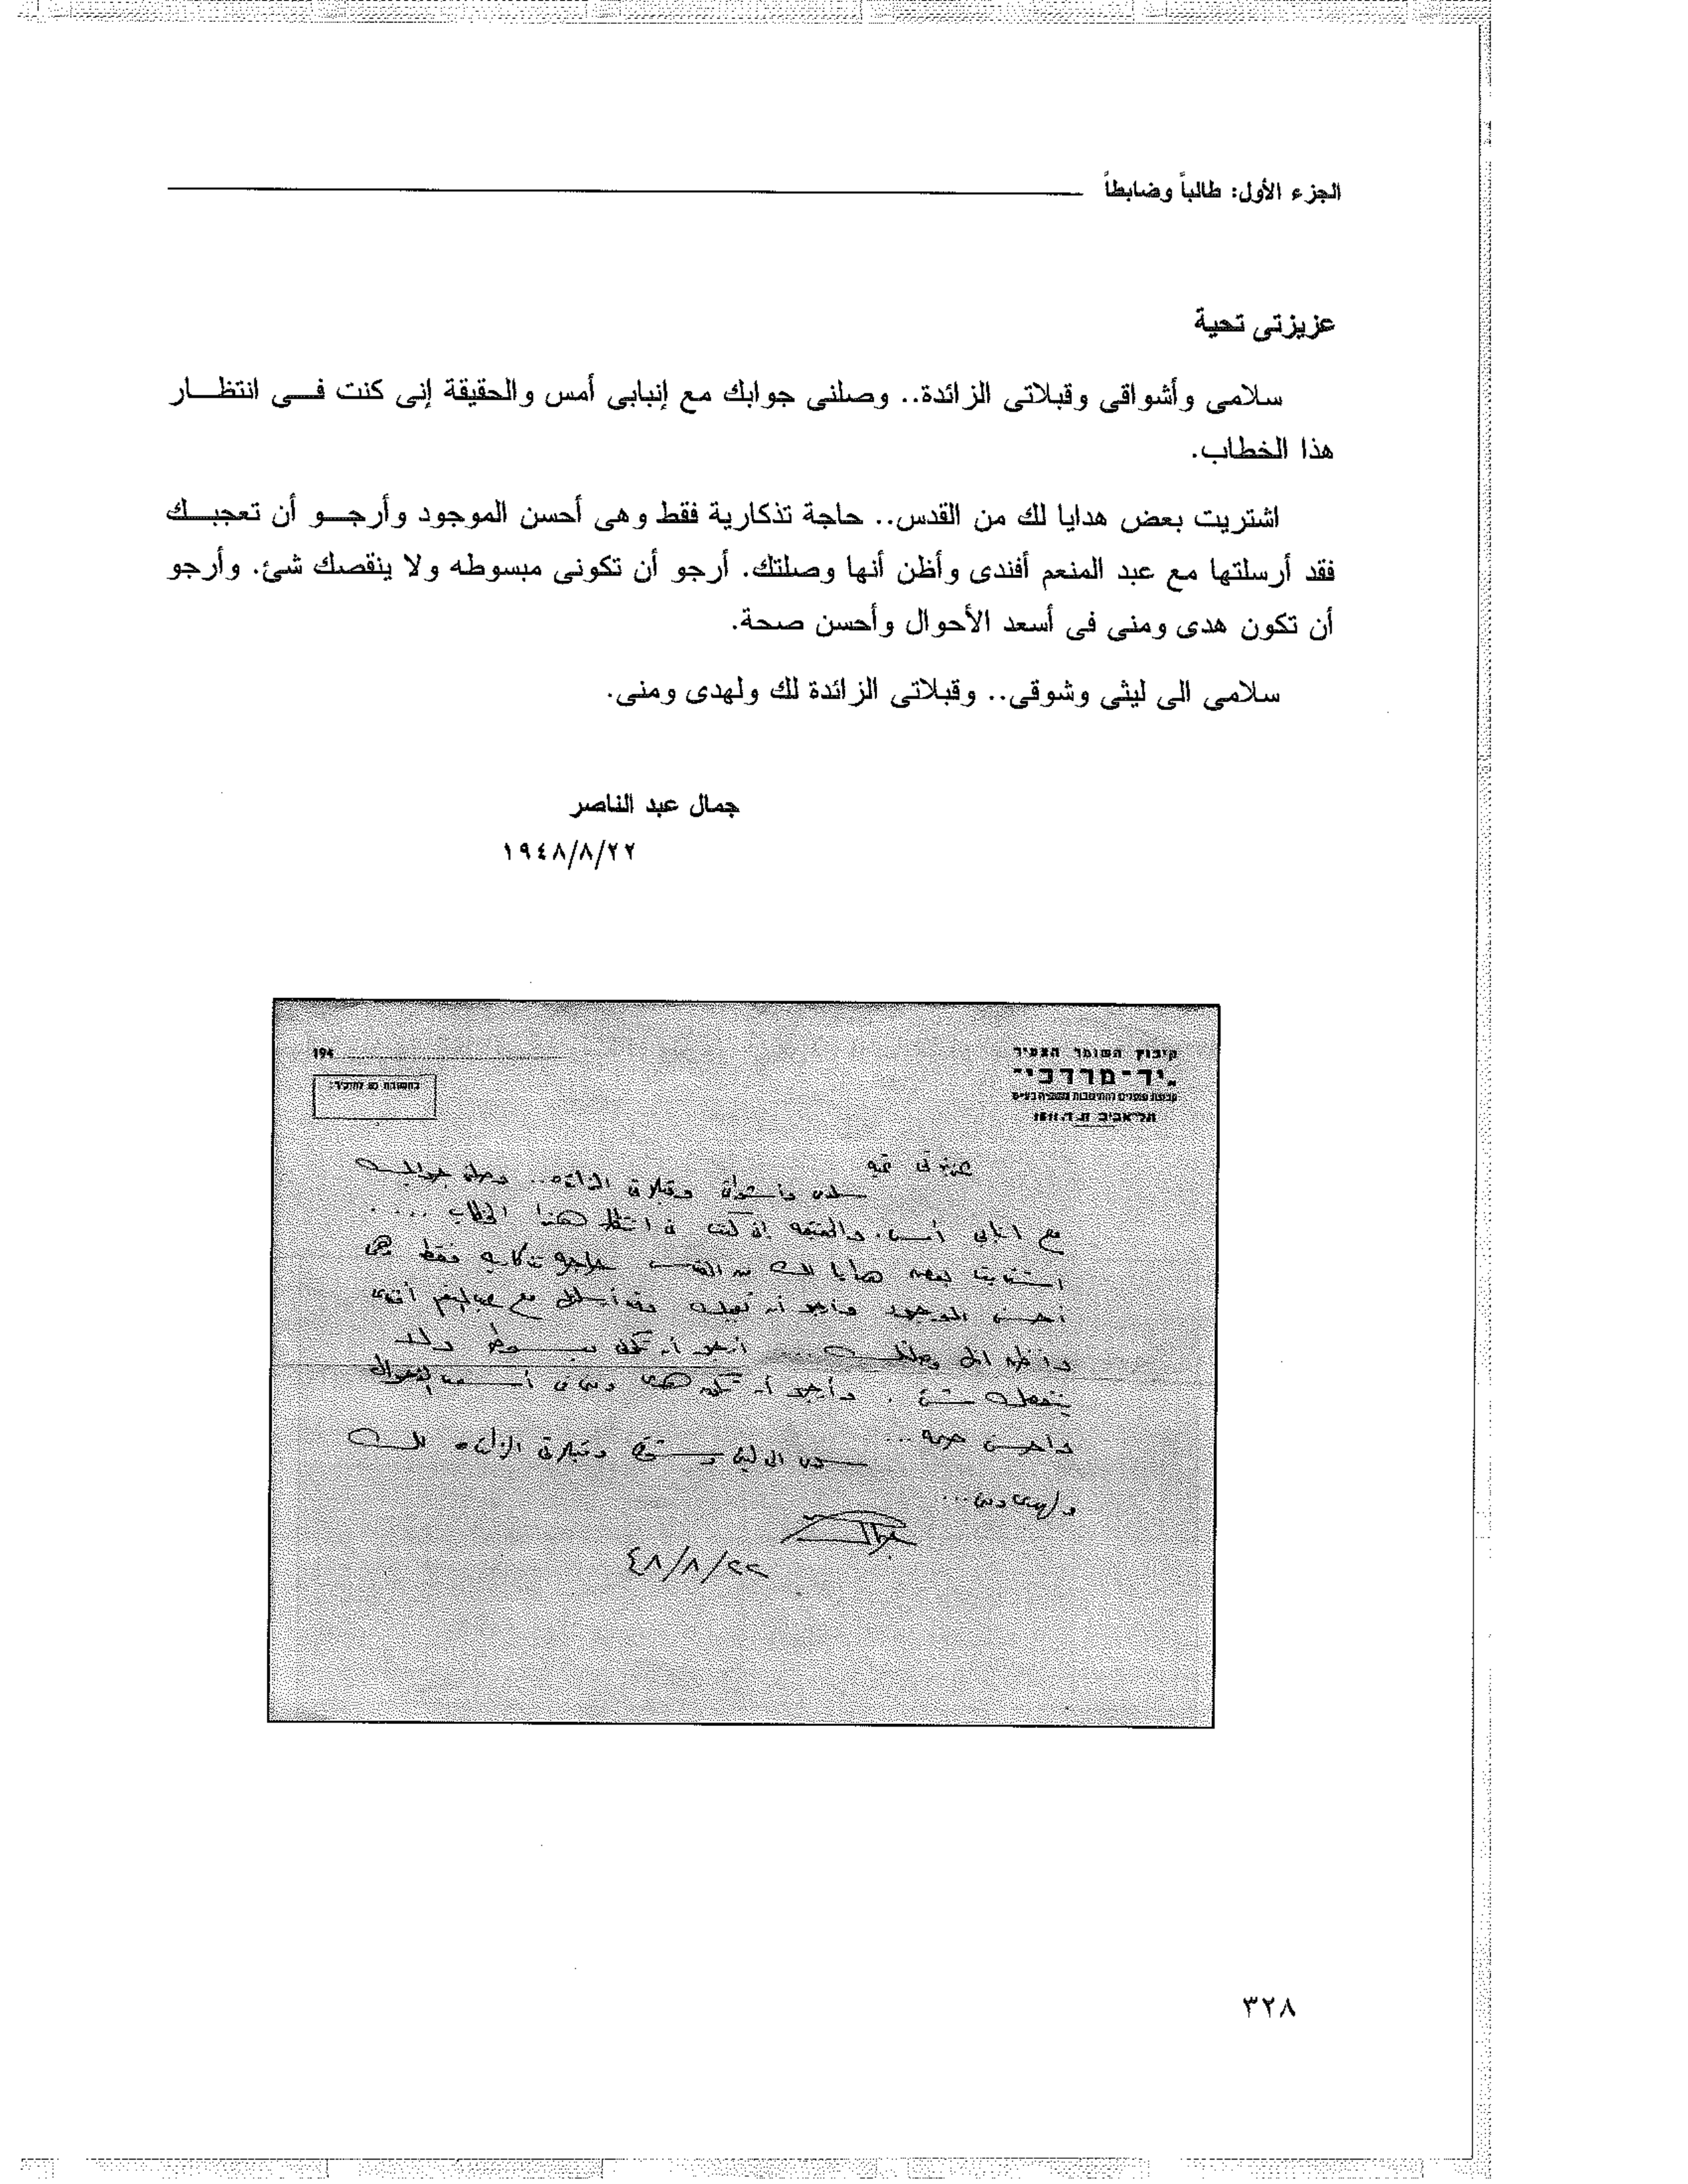 الجزء الأول: طالباً وضابطاً
عزيزتى تحية
سلامى وأشواقى وقبلاتى الزائدة.. وصلنى جوابك مع إنبابى أمس والحقيقة إنى كنت فـــى انتظـــار
هذا الخطاب.
اشتريت بعض هدايا لك من القدس.. حاجة تذكارية فقط وهى أحسن الموجود وأرجـــو أن تعجبـــك
فقد أرسلتها مع عبد المنعم أفندى وأظن أنها وصلتك. أرجو أن تكونى مبسوطه ولا ينقصك شئ. وأرجو
أن تكون هدى ومنى فى أسعد الأحوال وأحسن صحة.
سلامى الى ليثى وشوقى.. وقبلاتى الزائدة لك ولهدى ومنى.
جمال عبد الناصر
١٩٤٨/٨/٢٢
קיבוץ השומר הצעיר
"יד־מרדכי"
תל־אביב ת.ד.
194
בתשובה נא להזכיר:
عزيزتى تحيه
سلامى وأشواقى وقبلاتى الزائده.. وصلنى جوابك
مع انبابى أمس. والحقيقه إنى كنت فى انتظار هذا الخطاب ....
اشتريت بعض هدايا لك من القدس حاجه تذكاريه فقط وهى
أحسن الموجود وأرجو أن تعجبك وقد أرسلتها مع عبد المنعم أفندى
وأظن انها وصلتك .... أرجو أن تكونى مبسوطه ولا
ينقصك شئ . وأرجو أن تكون هدى ومنى فى أسعد الأحوال
وأحسن صحه ...
سلامى الى ليثى وشوقى وقبلاتى الزائده لك
ولهدى ومنى ...
جمال
٤٨/٨/٢٢
٣٢٨